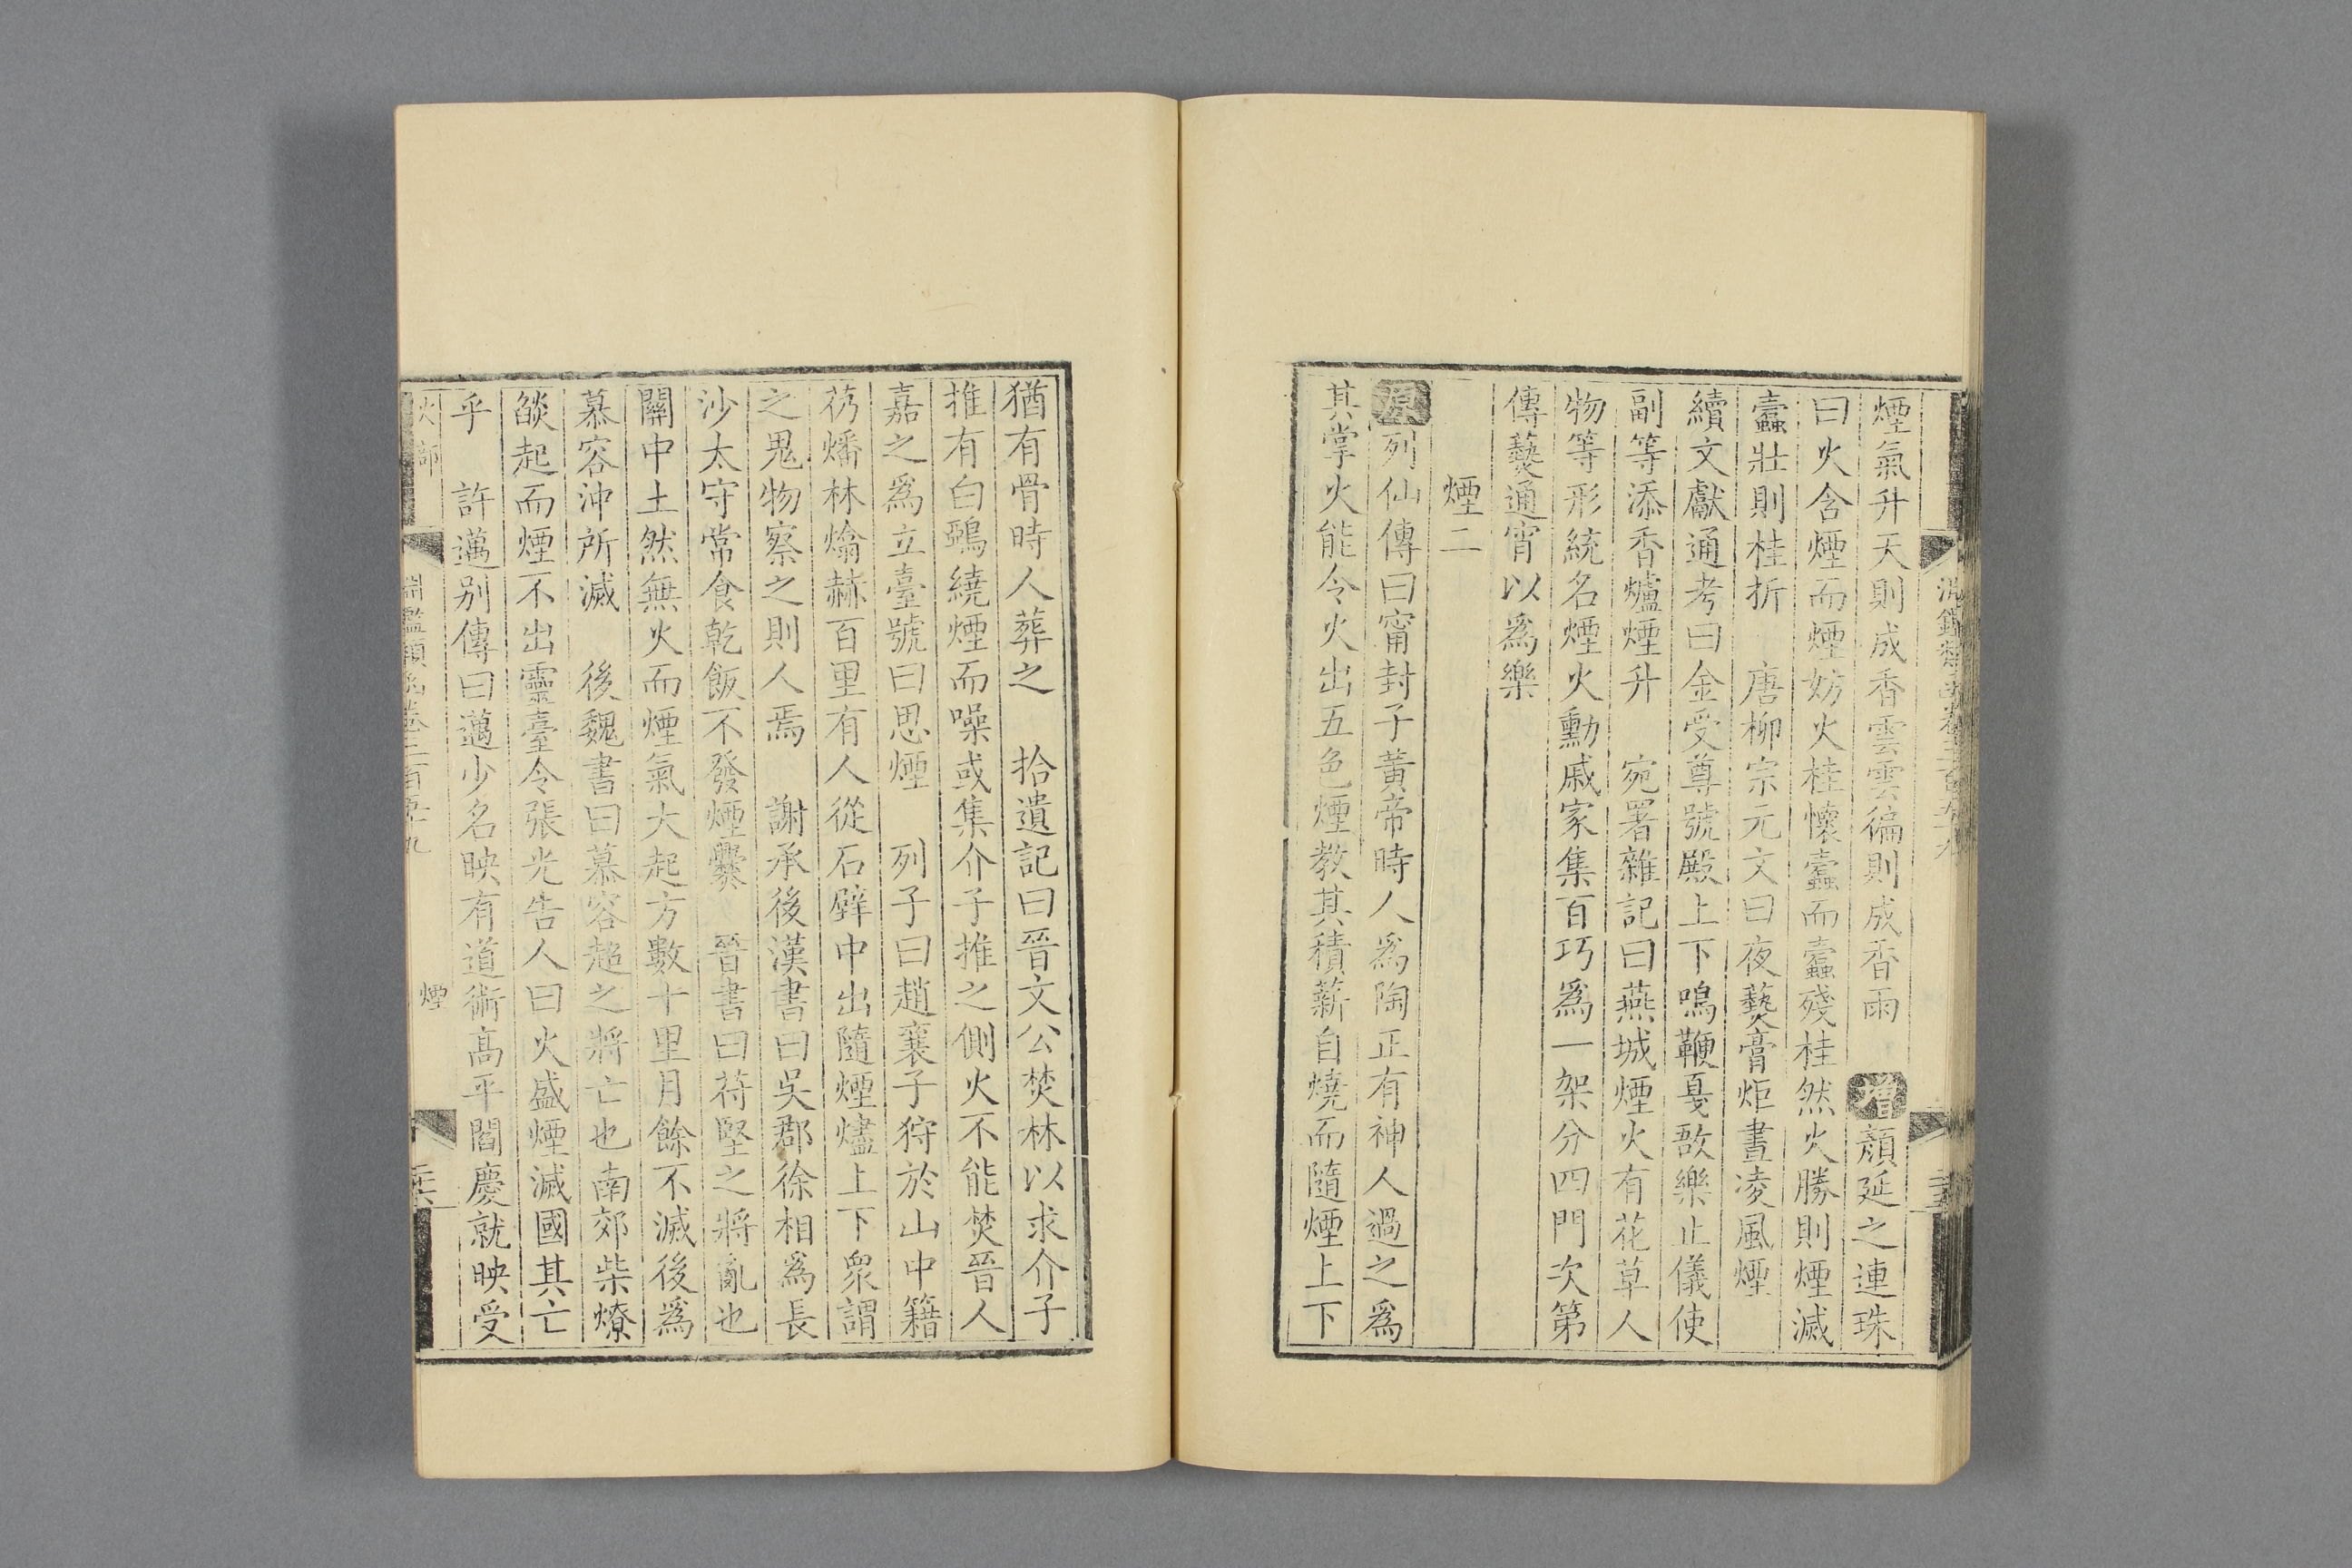 煙氣升天則成香雲雲徧則成香雨 增顏延之連珠
曰火含煙而煙妨火桂懷蠹而蠹殘桂然火勝則煙滅
蠹壯則桂折 唐柳宗元文曰夜爇膏炬晝凌風煙
續文獻通考曰金受尊號殿上下鳴鞭戛敔樂止儀使
副等添香爐煙升 宛署雜記曰燕城煙火有花草人
物等形統名煙火勳戚家集百巧爲一架分四門次第
傳爇通宵以爲樂
煙二
原列仙傳曰甯封子黃帝時人爲陶正有神人過之爲
其掌火能令火出五色煙教其積薪自燒而隨煙上下
猶有骨時人葬之 拾遺記曰晉文公焚林以求介子
推有白鵶繞煙而噪或集介子推之側火不能焚晉人
嘉之爲立臺號曰思煙 列子曰趙襄子狩於山中籍
芿燔林爚赫百里有人從石壁中出隨煙燼上下衆謂
之鬼物察之則人焉 謝承後漢書曰吳郡徐相爲長
沙太守常食乾飯不發煙爨 晉書曰苻堅之將亂也
關中土然無火而煙氣大起方數十里月餘不滅後爲
慕容沖所滅 後魏書曰慕容超之將亡也南郊柴燎
燄起而煙不出靈臺令張光告人曰火盛煙滅國其亡
乎 許邁別傳曰邁少名映有道術高平閻慶就映受
火部
淵鑑類函卷三百五十九
煙